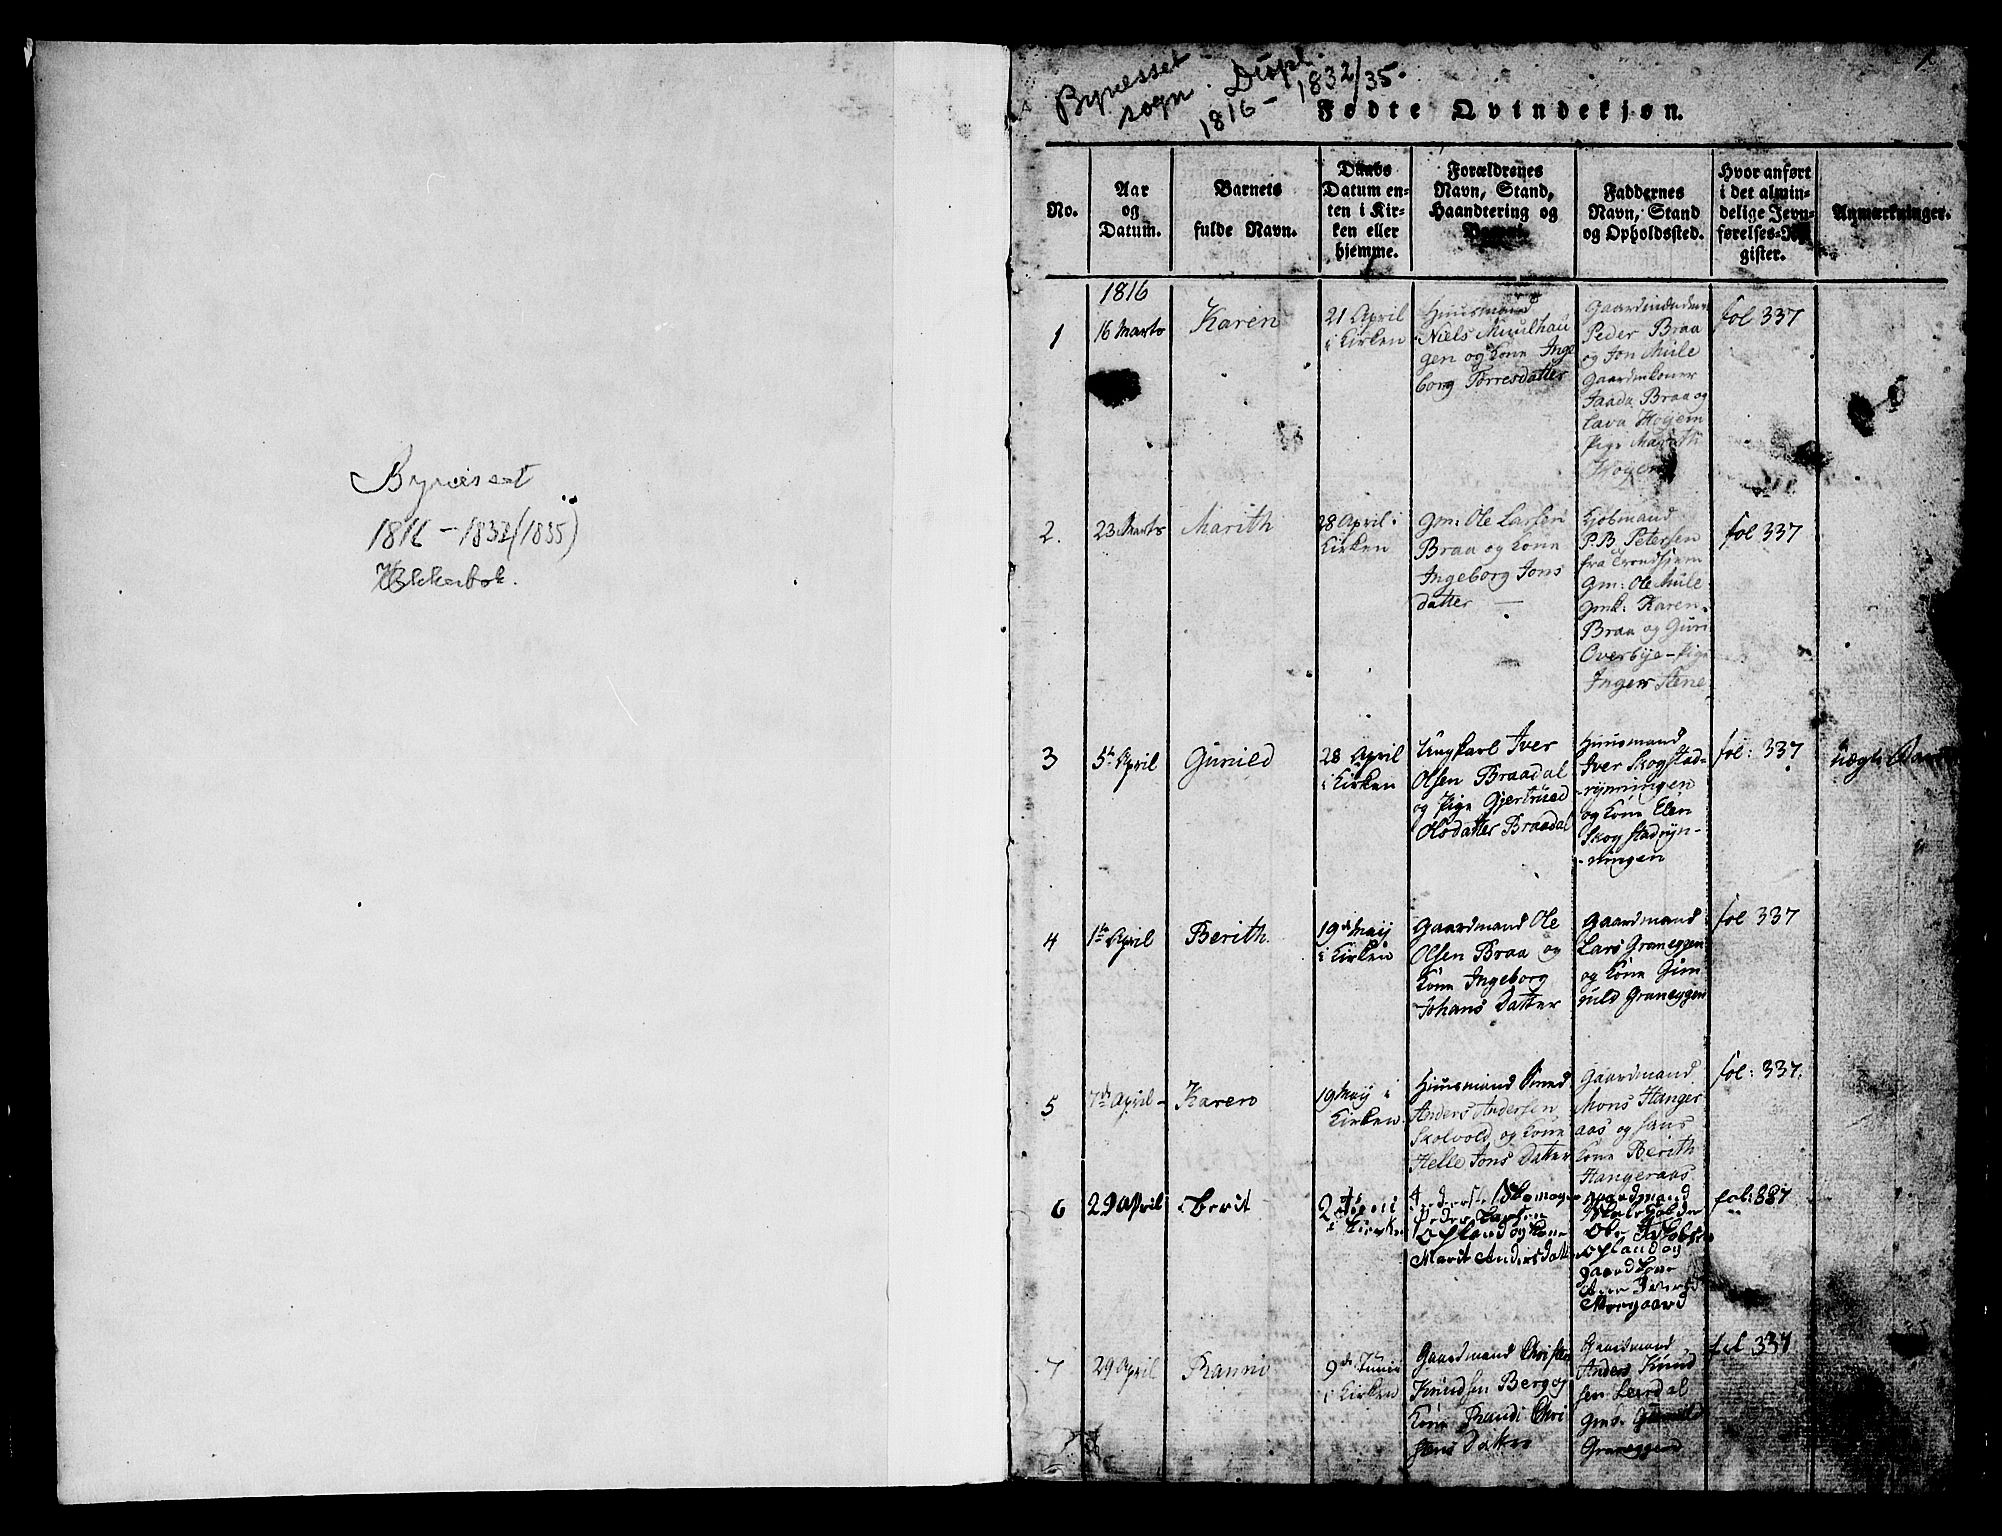 Bynesset
1816 - 1832 (1835)
Klokkerbok.
Bynesset
sogn. Dupl.
1816 - 1832/35.
1
Fødte Qvindekjøn.
No.
Aar
og
Datum.
Barnets
fulde Navn.
Daabs
Datum en-
ten i Kir-
ken eller
hjemme.
Forældrenes
Navn, Stand,
Haandtering og
Faddernes
Navn, Stand
og Opholdssted.
Hvor anført
i det almin-
delige Jevn-
førelses-Re-
gister.
Anmærkninger.
1
1816
16 Marts
Karen
21 April
i Kirken
Huusmand
Niels Muulhau
gen og Kone Inge
borg Torresdatter
Gaardmændene
Peder Braa
og Jon Mule
Gaardmkoner
Braa og
Høyem
Pige Marith
Høyem
fol 337
2.
23 Marts
Marith
28 April i
Kirken
Gm: Ole Larsen
Braa og Kone
Ingeborg Jons
datter —
Kjøbmand
P.B. Petersen
fra Trondhjem
Gm: Ole Mule
Gmk: Karen
Braa og Guri
Overbye - Pige
Inger Stene
fol 337
3
5te April
Gunild
28 April
i Kirken
Ungkarl Iver
Olsen Braadal
og Pige Gjertrued
Olsdatter Braadal
Huusmand
Iver Skogstad-
rynningen
og Kone Elen
Skogstadryn-
ningen
fol: 337
4
1te April
Berith.
19de Maij
i Kirken
Gaardmand Ole
Olsen Braa og
Kone Ingeborg
Johans Datter
Gaardmand
Lars Graneggen
og Kone Gun
nild Graneggen
fol 337
5
7de April -
Karen
19 Maij i
Kirken
Huusmand Smed
Anders Andersen
Skolvold og Kone
Helle Jons Datter
Gaardmand
Mons Hanger
aas og hans
Kone Berith
Hangeraas
fol: 337.
6
29 April
Berit
2 Juni
i Kirken
Peder Larsen
Opland og Kone
Marit Andersdatter
Gaardmand
Ole Jakobsen
Opland og
gaardkone
Ane Iversd
Moegaard
fol: 337
7
29 April
Ranni
9de Junii
i Kirken
Gaardmand Christen
Knudsen Berg og
Kone Randi Chri
stens Datter
Gaardmand
Anders Knud
sen Leerdal
Gmk. Gunild
Graneggen
fol 337